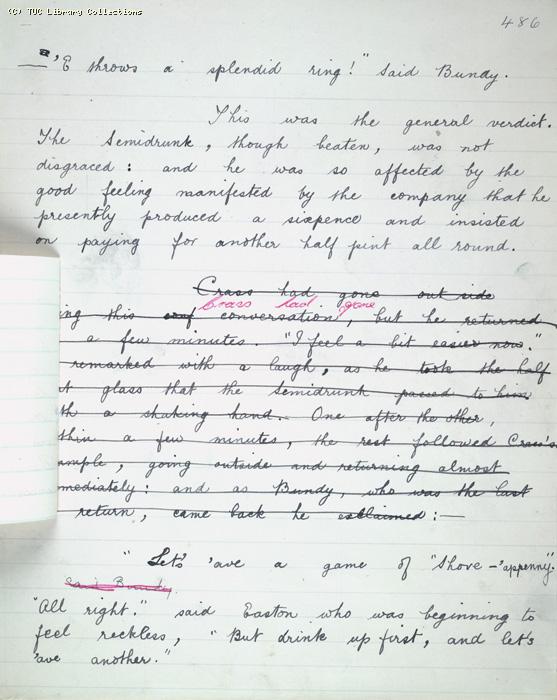 (C) TUC Library Collections
486
"'E throws a splendid ring!" said Bundy.
This was the general verdict.
The Semidrunk, though beaten, was not
disgraced: and he was so affected by the
good feeling manifested by the company that he
presently produced a sixpence and insisted
on paying for another half pint all round.
Crass had gone out side
Crass had gone
ing this conversation, but he returned
a few minutes. "I feel a bit easier now."
remarked with a laugh, as he took the half
t glass that the Semidrunk passed to him
th a shaking hand. One after the other,
thin a few minutes, the rest followed Crass's
ample, going outside and returning almost
mediately: and as Bundy, who was the last
return, came back he exclaimed:—
"Let's 'ave a game of "Shove-'appenny."
said Bundy.
"All right." said Easton who was beginning to
feel reckless, "But drink up first, and let's
'ave another."